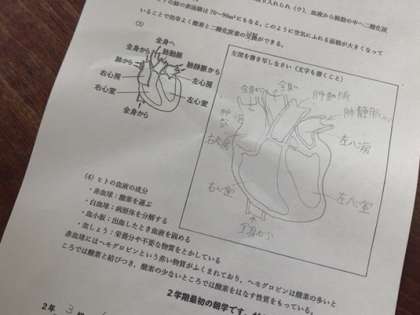 ヒトの肺の表面積は70〜90㎡にもなる。このように空気にふれる面積が大きくなって
いることで効率よく酸素と二酸化炭素の交換ができる。
(3)
全身へ
全身から
肺動脈
肺から
肺静脈から
右心房
左心房
右心室
左心室
全身から
左図を書き写しなさい（文字も書くこと）
全身へ
肺動脈
左心房
右心室
左心室
(4) ヒトの血液の成分
・赤血球：酸素を運ぶ
・白血球：病原体を分解する
・血小板：出血したとき血液を固める
・血しょう：栄養分や不要な物質をとかしている
赤血球にはヘモグロビンという赤い物質がふくまれており、ヘモグロビンは酸素の多いと
ころでは酸素と結びつき、酸素の少ないところでは酸素をはなす性質をもっている。
2学期最初の朝学です。
2年 3